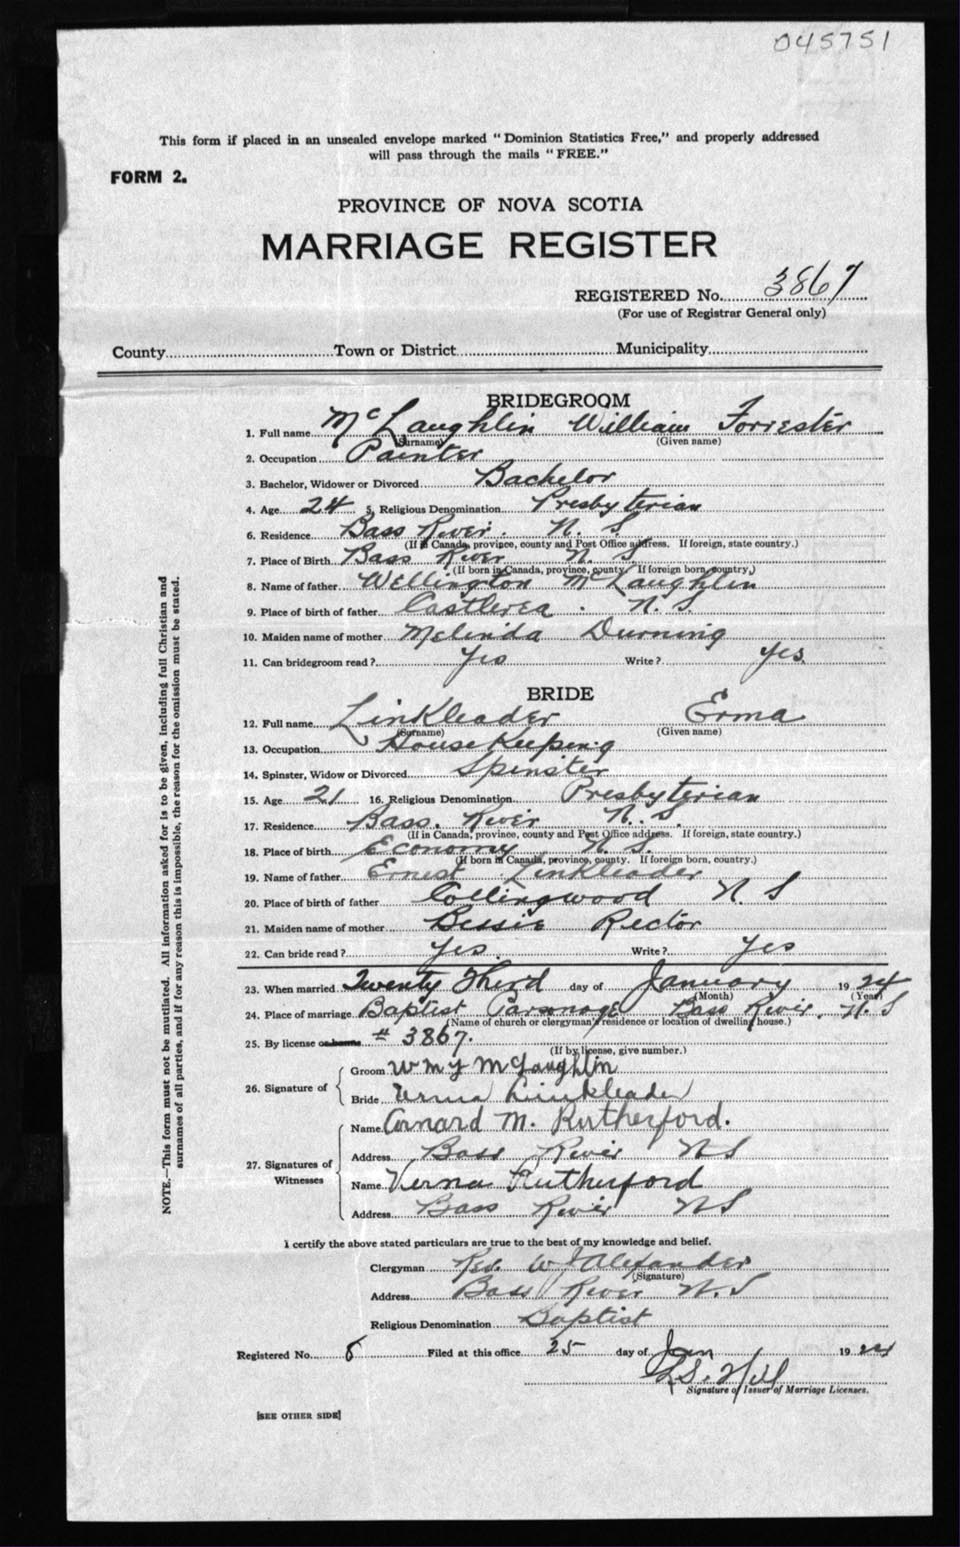 045751
This form if placed in an unsealed envelope marked "Dominion Statistics Free," and properly addressed
will pass through the mails "FREE."
FORM 2.
PROVINCE OF NOVA SCOTIA
MARRIAGE REGISTER
REGISTERED No. 3867
(For use of Registrar General only)
County Town or District Municipality
BRIDEGROOM
1. Full name McLaughlin William Forrester
(Surname) (Given name)
2. Occupation Painter
3. Bachelor, Widower or Divorced Bachelor
4. Age 24 5. Religious Denomination Presbyterian
6. Residence Bass River. N. S
(If in Canada, province, county and Post Office address. If foreign, state country.)
7. Place of Birth Bass River N. S
(If born in Canada, province, county. If foreign born, country.)
8. Name of father Wellington McLaughlin
9. Place of birth of father Castlerea. N. S
10. Maiden name of mother Melinda Durning
11. Can bridegroom read? Yes Write? Yes.
BRIDE
12. Full name Linkleader Erma
(Surname) (Given name)
13. Occupation House Keeping
14. Spinster, Widow or Divorced Spinster
15. Age 21 16. Religious Denomination Presbyterian
17. Residence Bass. River N. S.
(If in Canada, province, county and Post Office address. If foreign, state country.)
18. Place of birth Economy N. S.
(If born in Canada, province, county. If foreign born, country.)
19. Name of father Ernest Linkleader
20. Place of birth of father Collingwood N. S
21. Maiden name of mother Bessie Rector
22. Can bride read? Yes. Write? Yes
23. When married Twenty Third day of January 1924
(Month) (Year)
24. Place of marriage Baptist Parsonage Bass River. N. S
(Name of church or clergyman's residence or location of dwelling house.)
25. By license or banns # 3867.
(If by license, give number.)
26. Signature of
Groom Wm F McLaughlin
Bride Erma Linkleader
27. Signatures of
Witnesses
Name M. Rutherford.
Address Bass River NS
Name Verna Rutherford
Address Bass River NS
I certify the above stated particulars are true to the best of my knowledge and belief.
Clergyman Rev. W J Alexander
(Signature)
Address Bass River N. S
Religious Denomination Baptist
Registered No. 8 Filed at this office 25 day of Jan 1924
Hill
Signature of Issuer of Marriage Licenses.
[SEE OTHER SIDE]
NOTE.—This form must not be mutilated. All information asked for is to be given, including full Christian and
surnames of all parties, and if for any reason this is impossible, the reason for the omission must be stated.